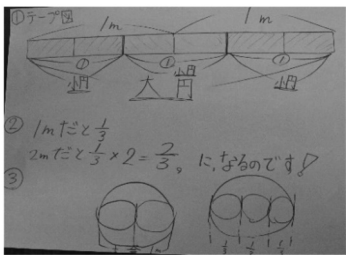 ①テープ図
1m 1m
① ① ①
小円 大円 小円 小円
② 1mだと1/3
2mだと1/3×2=2/3。に、なるのです!
③
1/3 1/3 1/3